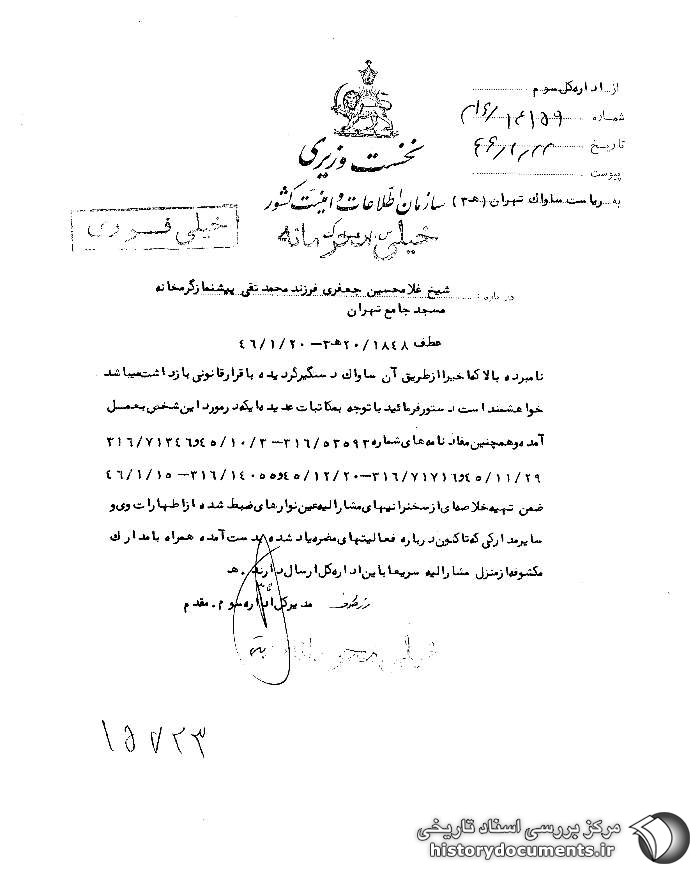 از اداره کل سوم
شماره ۳۱۶/۱۴۱۵۹
تاریخ
پیوست
نخست وزیری
سازمان اطلاعات و امنیت کشور
به ریاست ساواک تهران (۲۰هـ۳)
خیلی فوری
خیلی محرمانه
درباره : شیخ غلامحسین جعفری فرزند محمد تقی پیشنماز گرمخانه
مسجد جامع تهران
عطف ۲۰/۱۸۴۸هـ۳ – ۴۶/۱/۲۰
نامبرده بالا که اخیرا از طریق آن ساواک دستگیر گردیده با قرار قانونی بازداشت میباشد
خواهشمند است دستور فرمائید با توجه بمکاتبات عدیده ایکه در مورد این شخص بعمل
آمده و همچنین مفاد نامه های شماره ۳۱۶/۵۳۵۹۲ – ۴۵/۱۰/۳ و ۳۱۶/۷۱۳۴۶
۴۵/۱۱/۲۹ و ۳۱۶/۷۱۷۱۶ – ۴۵/۱۲/۲۰ و ۳۱۶/۱۴۰۵۵ – ۴۶/۱/۱۵
ضمن تهیه خلاصه ای از سخنرانیهای مشارالیه عین نوارهای ضبط شده از اظهارات وی و
سایر مدارکی که تاکنون درباره فعالیتهای مضره یاد شده بدست آمده همراه با مدارک
مکشوفه از منزل مشارالیه سریعا باین اداره کل ارسال دارند. هـ
مدیر کل اداره سوم . مقدم
خیلی محرمانه
۱۵۷۲۳
مرکز بررسی اسناد تاریخی
historydocuments.ir